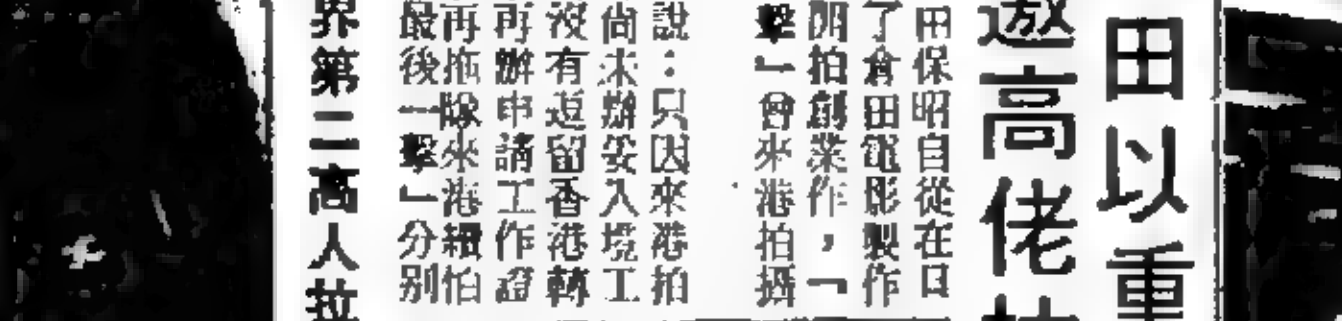 田以重
邀高佬
田保昭自從在日
了倉田電影製作
開拍創業作，「
擊」會來港拍攝
說：只因來港拍
尚未辦妥入境工
沒有逗留香港轉
再辦申請工作證
再拖隊來港續拍
最後一擊」分別
界第二高人拉